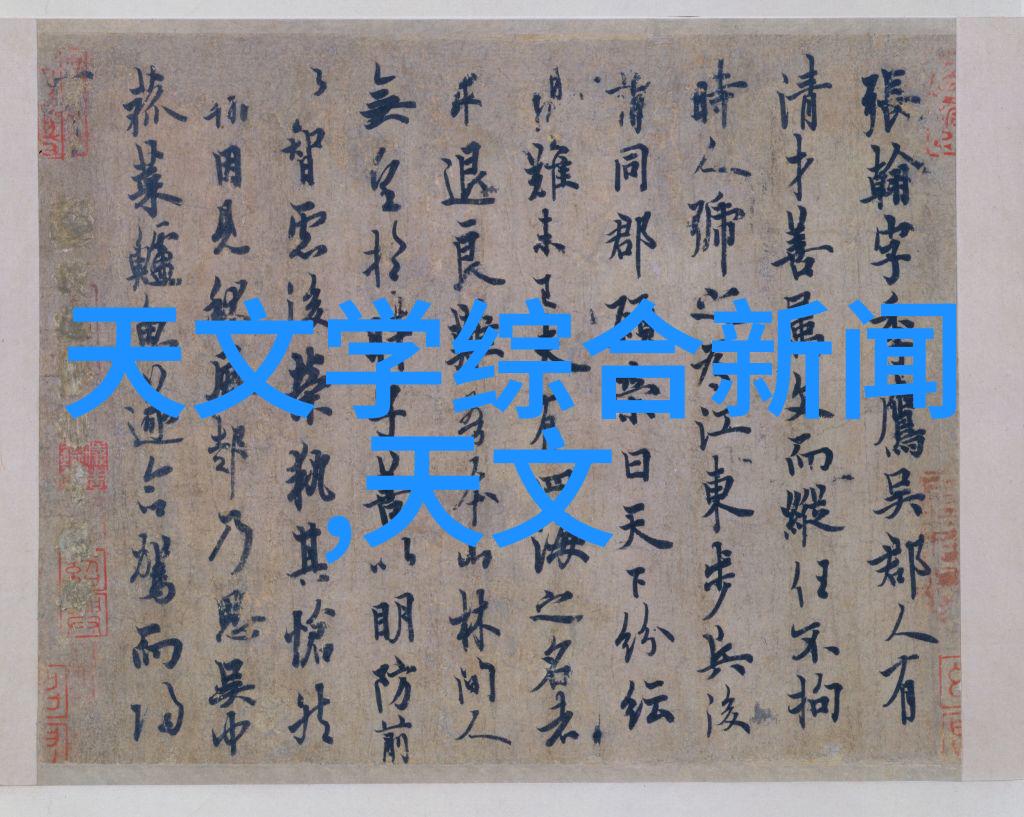 天文学综合新闻
,天文
張翰字季鷹吳郡人有
清才善屬文而縱任不拘
時人號之為江東步兵後
謂同郡顧榮曰天下紛紜
難未已夫有四海之名者
求退良難吾本山林間人
無望於時子善以明防前
以智慮後榮執其愴然
因見秋風起乃思吳中
菰菜鱸魚遂命駕而歸